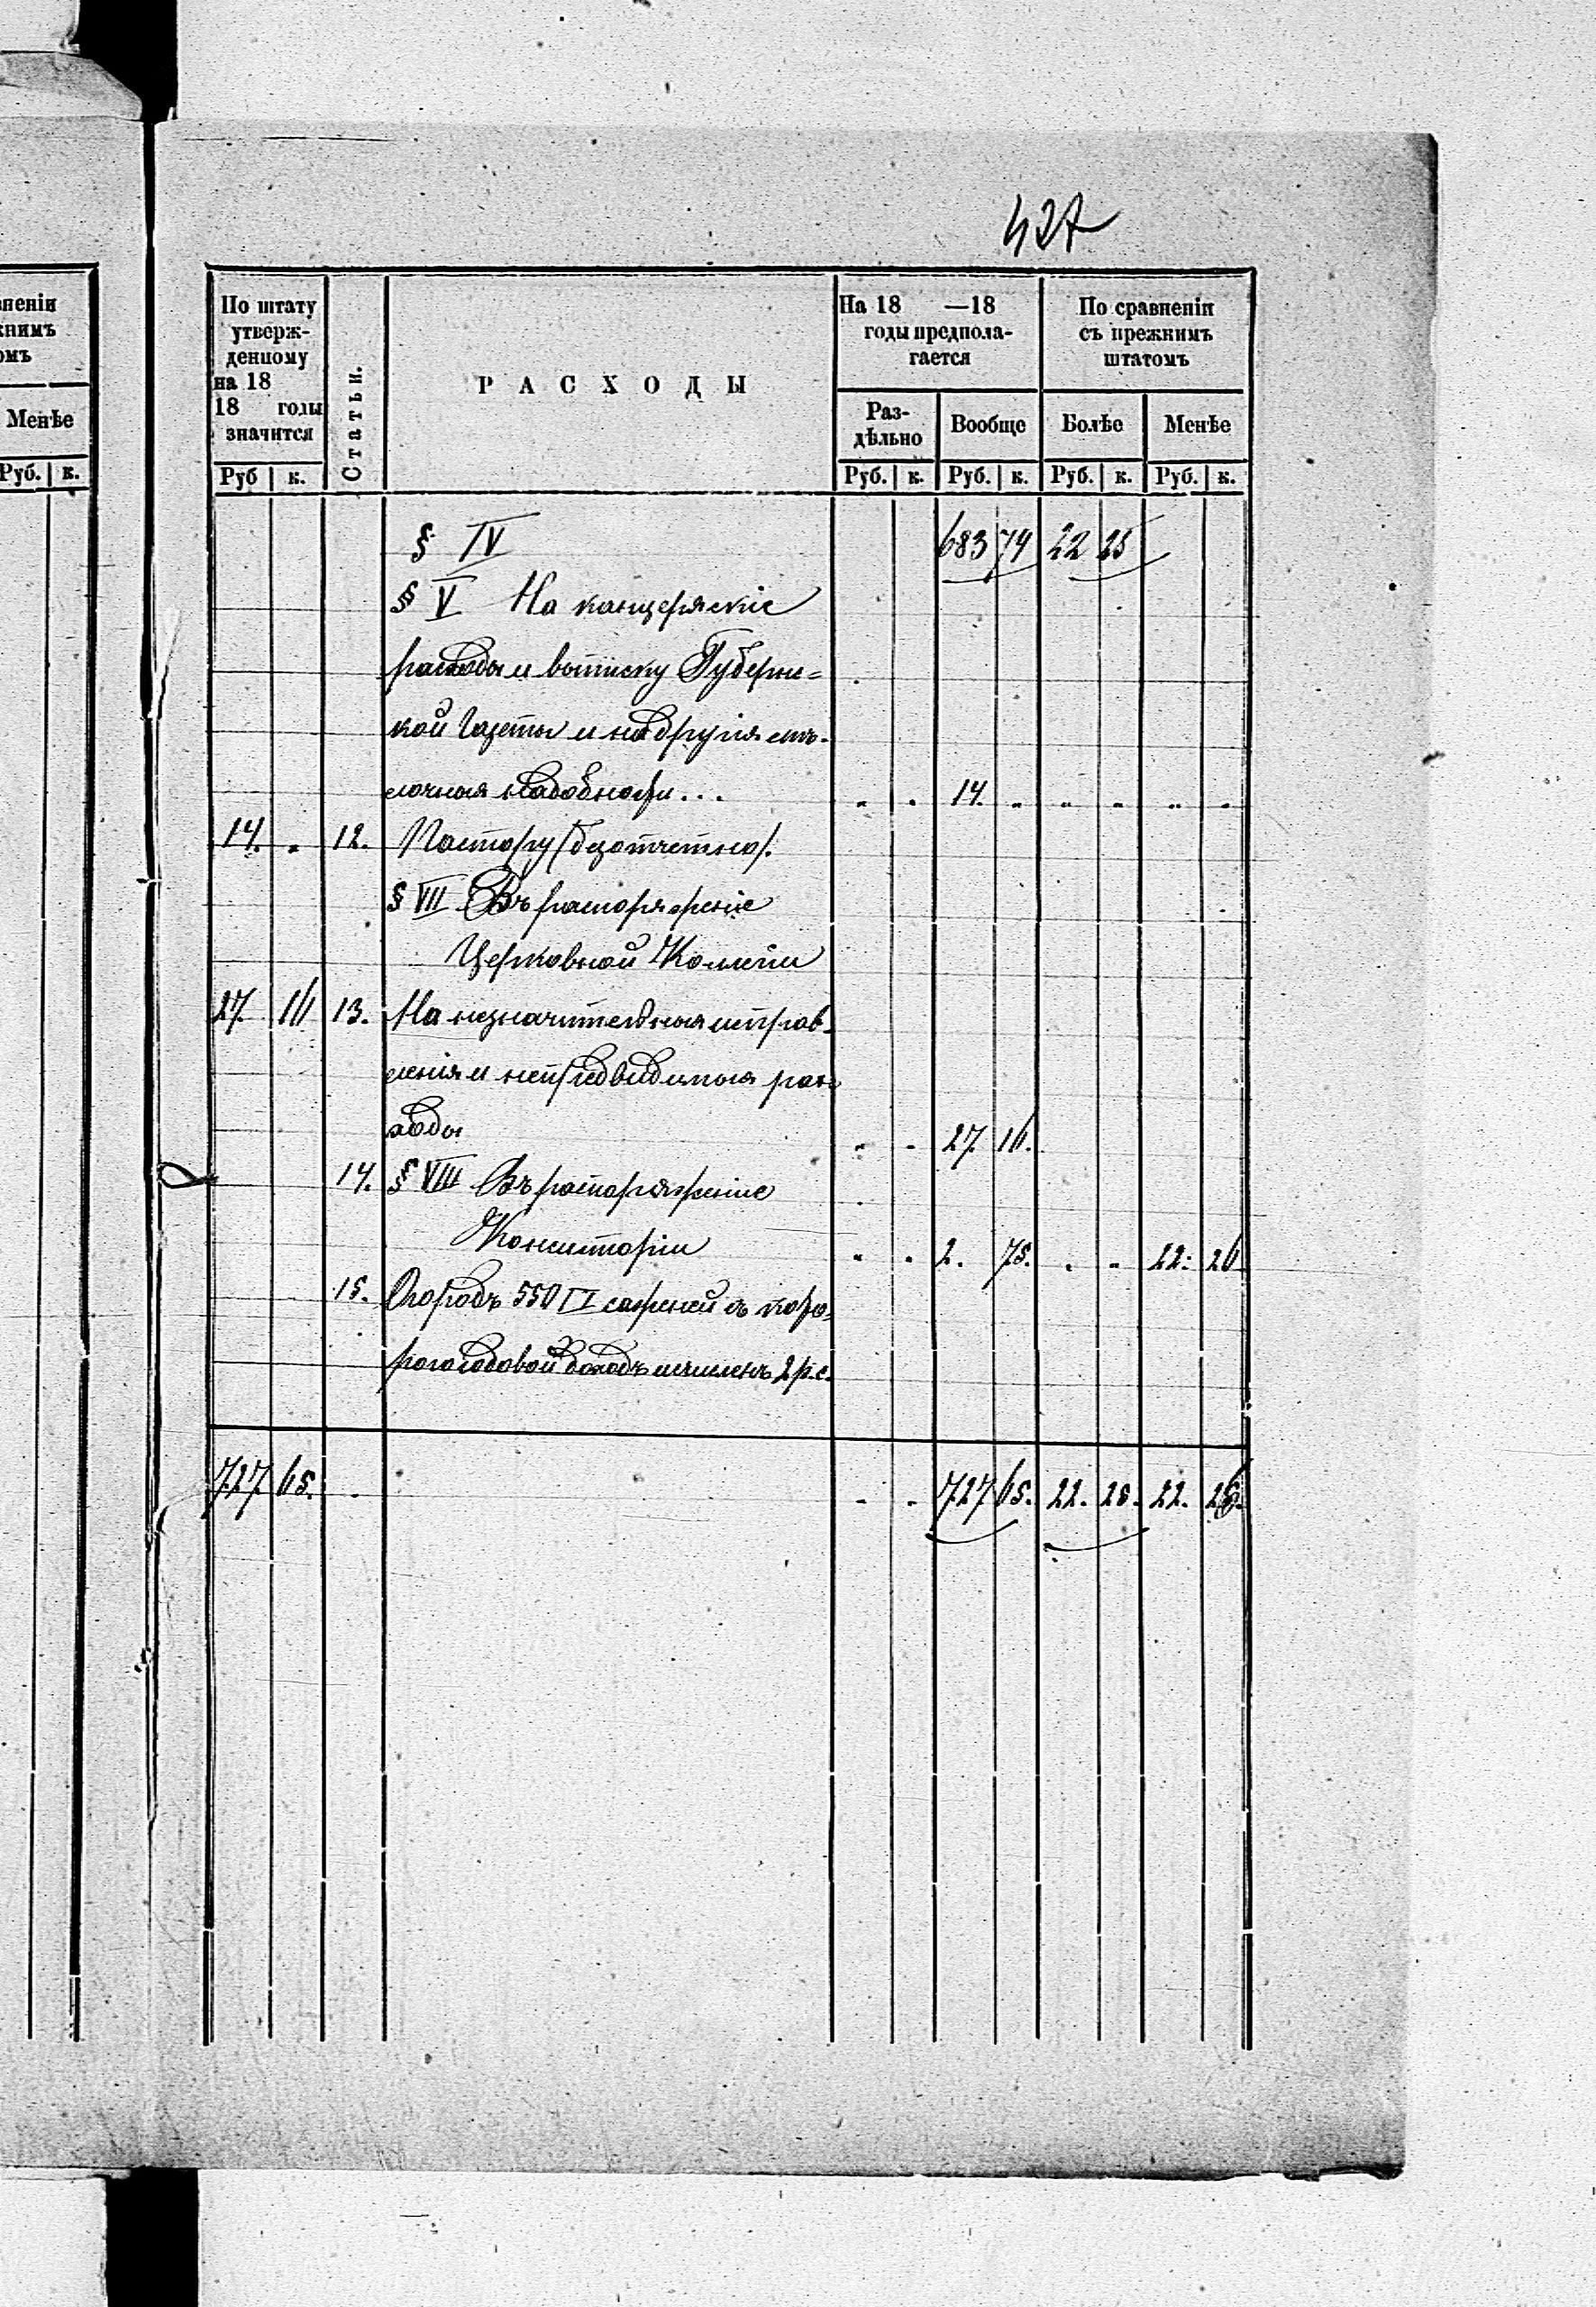 427
вненіи
жнимъ
омъ
Менѣе
Руб. к.
По штату утверж-
денному
на 18
18 годы
значится
Статьи.
РАСХОДЫ
На 18 —18
годы предпола-
гается
По сравненіи
съ прежнимъ
штатомъ
Раз-
дѣльно
Вообще
Болѣе
Менѣе
Руб к. Руб. к. Руб. к. Руб. к. Руб. к.
§ IV 683 79 22 25
§ V На канцерскіе
расходы и выписку Губернс-
кой Газеты и на другія ме-
лочныя надобности... 14.
14. 12. Пастору (безотчетно).
§ VII Въ распоряженіе
Церковной Коллегіи
27. 16 13. На незначительныя исправ-
ленія и непредвидимыя рас-
ходы 27. 16.
14. § VIII Въ распоряженіе
Консисторіи 2. 75. 22. 26
15. Огородъ 550 □ саженей съ кото-
рого годовой доходъ исчисленъ 2 р.с.
727 65. 727 65. 22. 25. 22. 26.